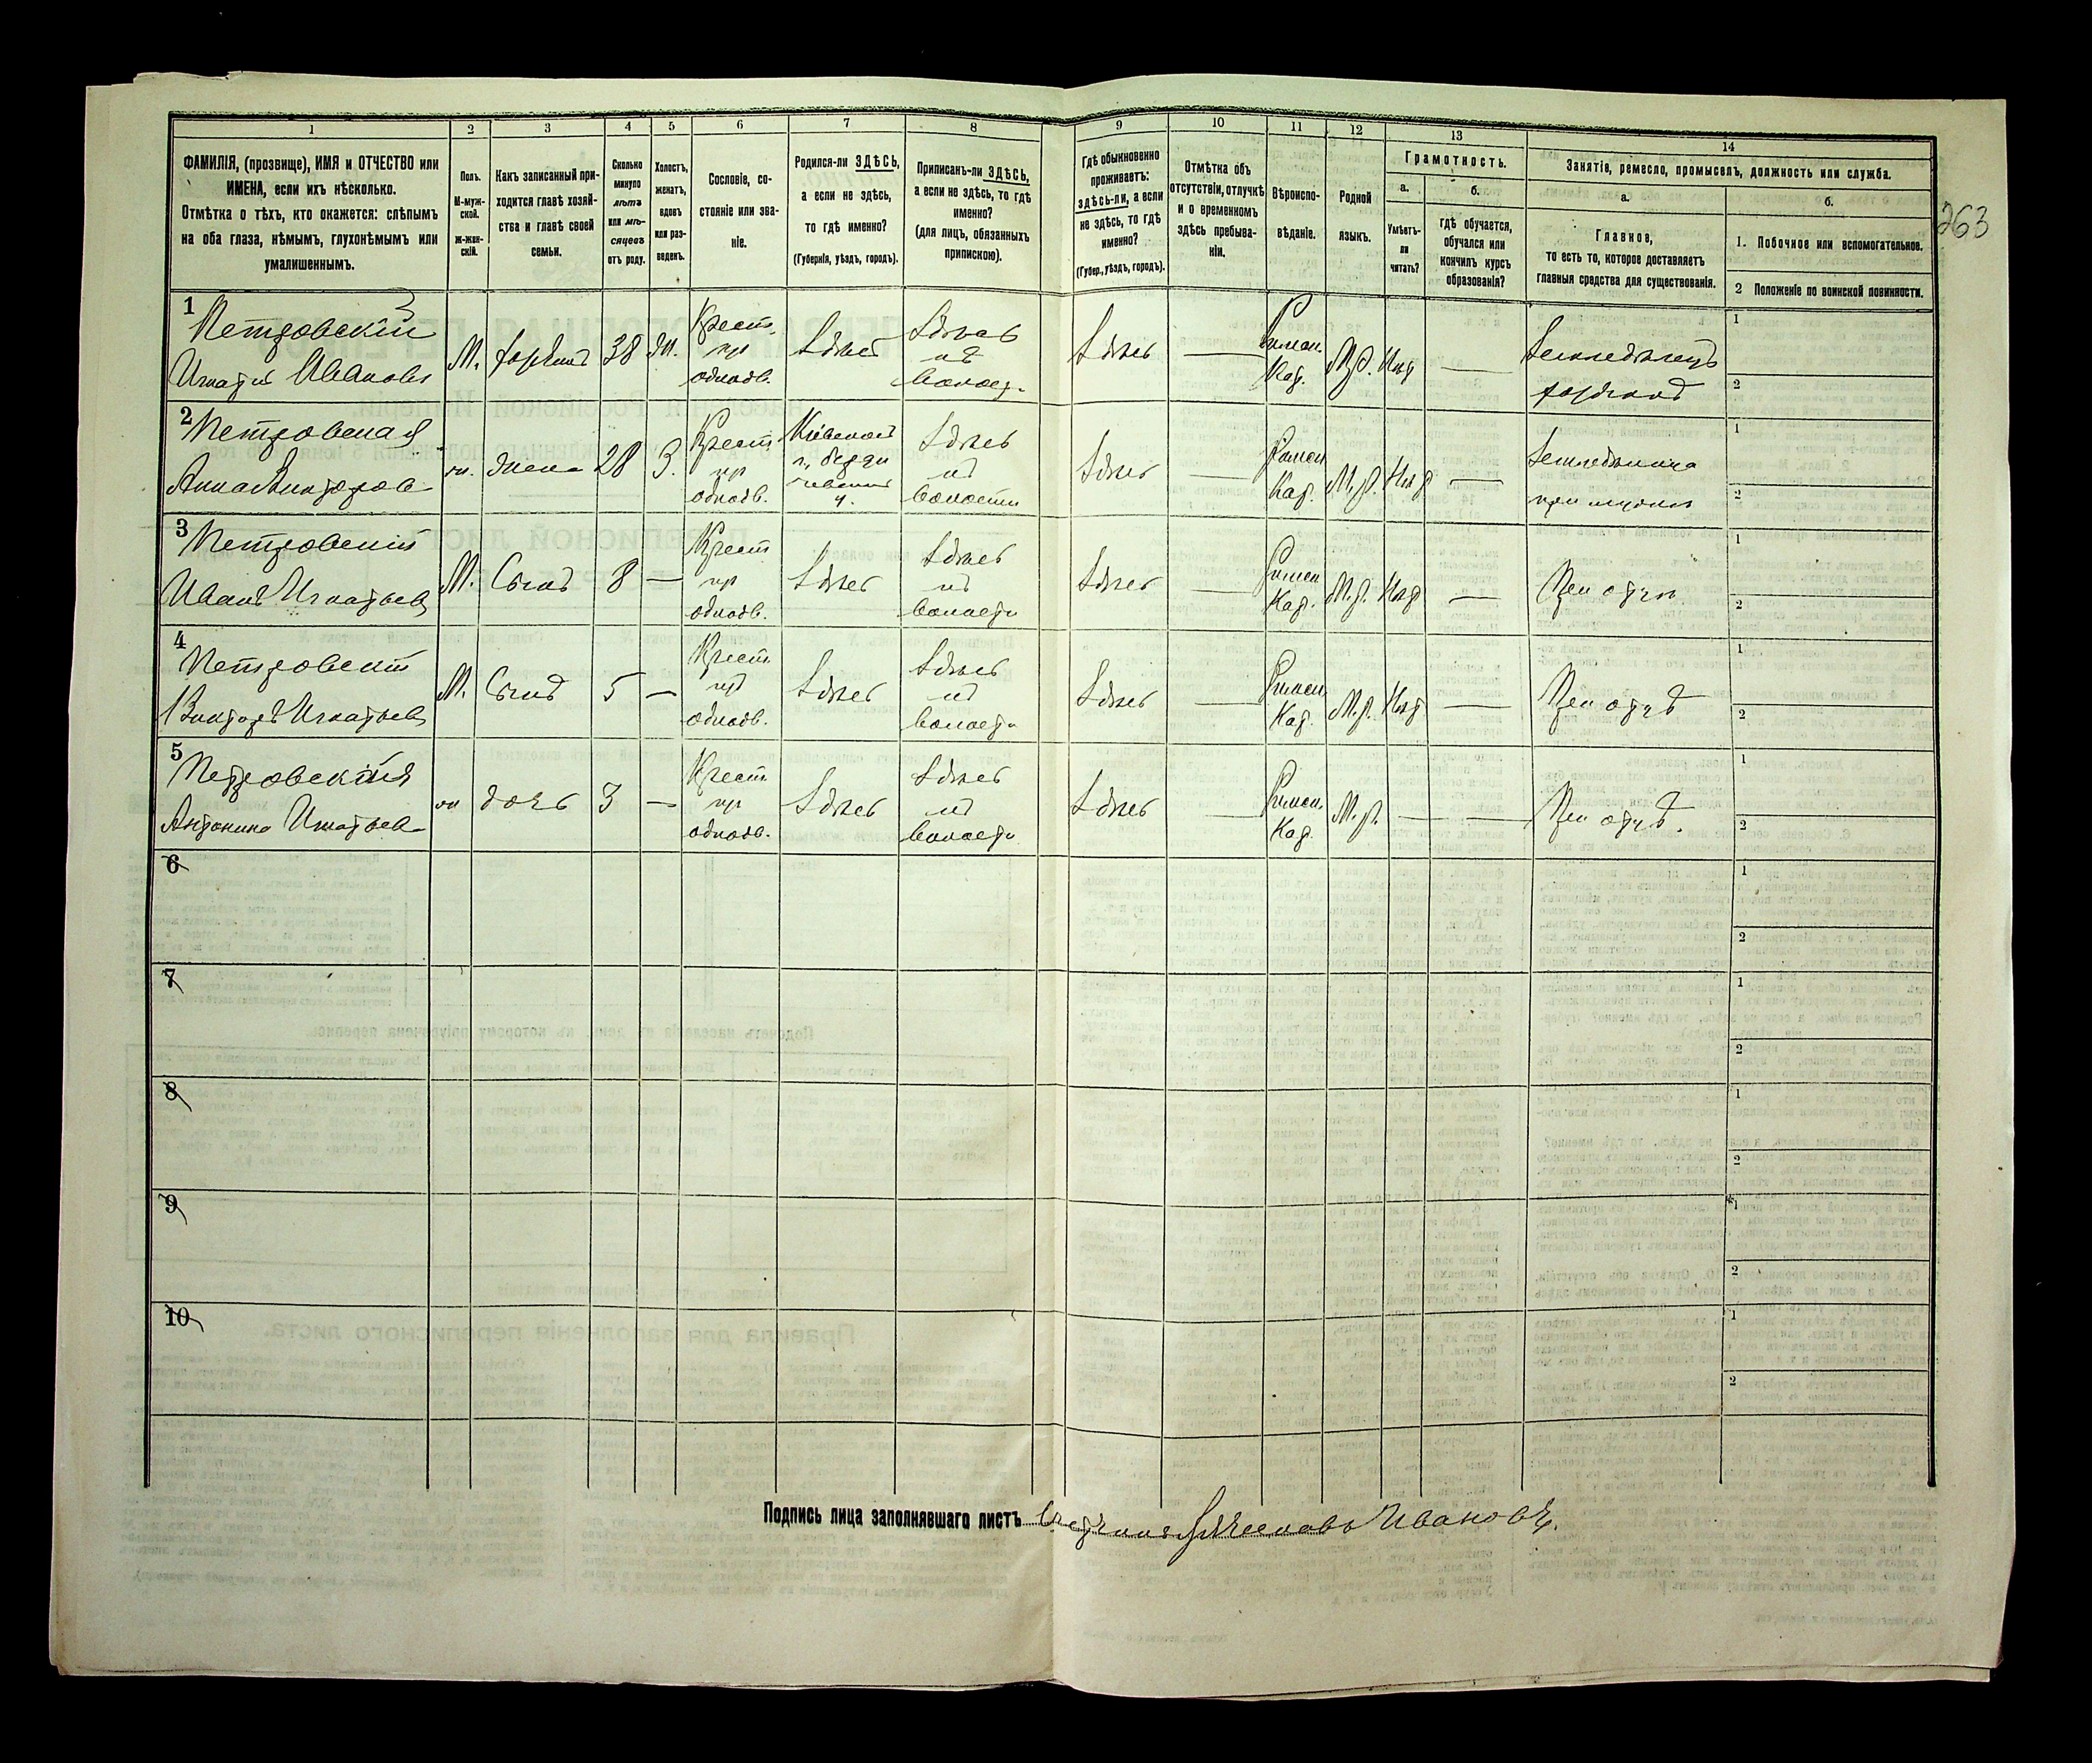 263
1
ФАМИЛІЯ, (прозвище), ИМЯ и ОТЧЕСТВО или
ИМЕНА, если ихъ нѣсколько.
Отмѣтка о тѣхъ, кто окажется: слѣпымъ
на оба глаза, нѣмымъ, глухонѣмымъ или
умалишеннымъ.
2
Полъ.
М-муж-
ской.
ж-жен-
скій.
3
Какъ записанный при-
ходится главѣ хозяй-
ства и главѣ своей
семьи.
4
Сколько
минуло
лѣтъ
или мѣ-
сяцевъ
отъ роду.
5
Холостъ,
женатъ,
вдовъ
или раз-
веденъ.
6
Сословіе, со-
стояніе или зва-
ніе.
7
Родился-ли ЗДѢСЬ,
а если не здѣсь,
то гдѣ именно?
(Губернія, уѣздъ, городъ).
8
Приписанъ-ли ЗДѢСЬ,
а если не здѣсь, то гдѣ
именно?
(для лицъ, обязанныхъ
припискою).
9
Гдѣ обыкновенно
проживаетъ:
здѣсь-ли, а если
не здѣсь, то гдѣ
именно?
(Губер., уѣздъ, городъ).
10
Отмѣтка объ
отсутствіи, отлучкѣ
и о временномъ
здѣсь пребыва-
ніи.
11
Вѣроиспо-
вѣданіе.
12
Родной
языкъ.
13
Грамотность.
а.
Умѣетъ-
ли
читать?
б.
гдѣ обучается,
обучался или
кончилъ курсъ
образованія?
14
Занятіе, ремесло, промыселъ, должность или служба.
а.
Главное,
то есть то, которое доставляетъ
главныя средства для существованія.
б.
1. Побочное или вспомогательное.
2 Положеніе по воинской повинности.
1
Петровскій
Игнатій Ивановъ
М.
38
Крест.
Здѣсь
Здѣсь
Здѣсь
Римск.
Кат.
Нѣт
1
2
2
Петровская
Анна Викторов
жена
28
З.
Крест
Кіевской
г., берди
чевскаго
у.
Здѣсь
волости
Здѣсь
Римск
Кат.
Нѣт
1
2
3
Петровскій
Иванъ Игнатьевъ
М.
Сынъ
8
—
Крест
Здѣсь
Здѣсь
волости
Здѣсь
Римск
Кат.
Нѣт
При отцѣ
1
2
4
Петровскій
Викторъ Игнатьевъ
М.
Сынъ
5
—
Крест
Здѣсь
Здѣсь
волости
Здѣсь
Римск
Кат.
Нѣт
При отцѣ
1
2
5
Петровская
Антонина Игнатьева
дочь
3
—
Крест
Здѣсь
Здѣсь
волости
Здѣсь
Римск.
Кат.
При отцѣ.
1
2
6
1
2
7
1
2
8
1
2
9
1
2
10
1
2
Подпись лица заполнявшаго листъ
Ивановъ.